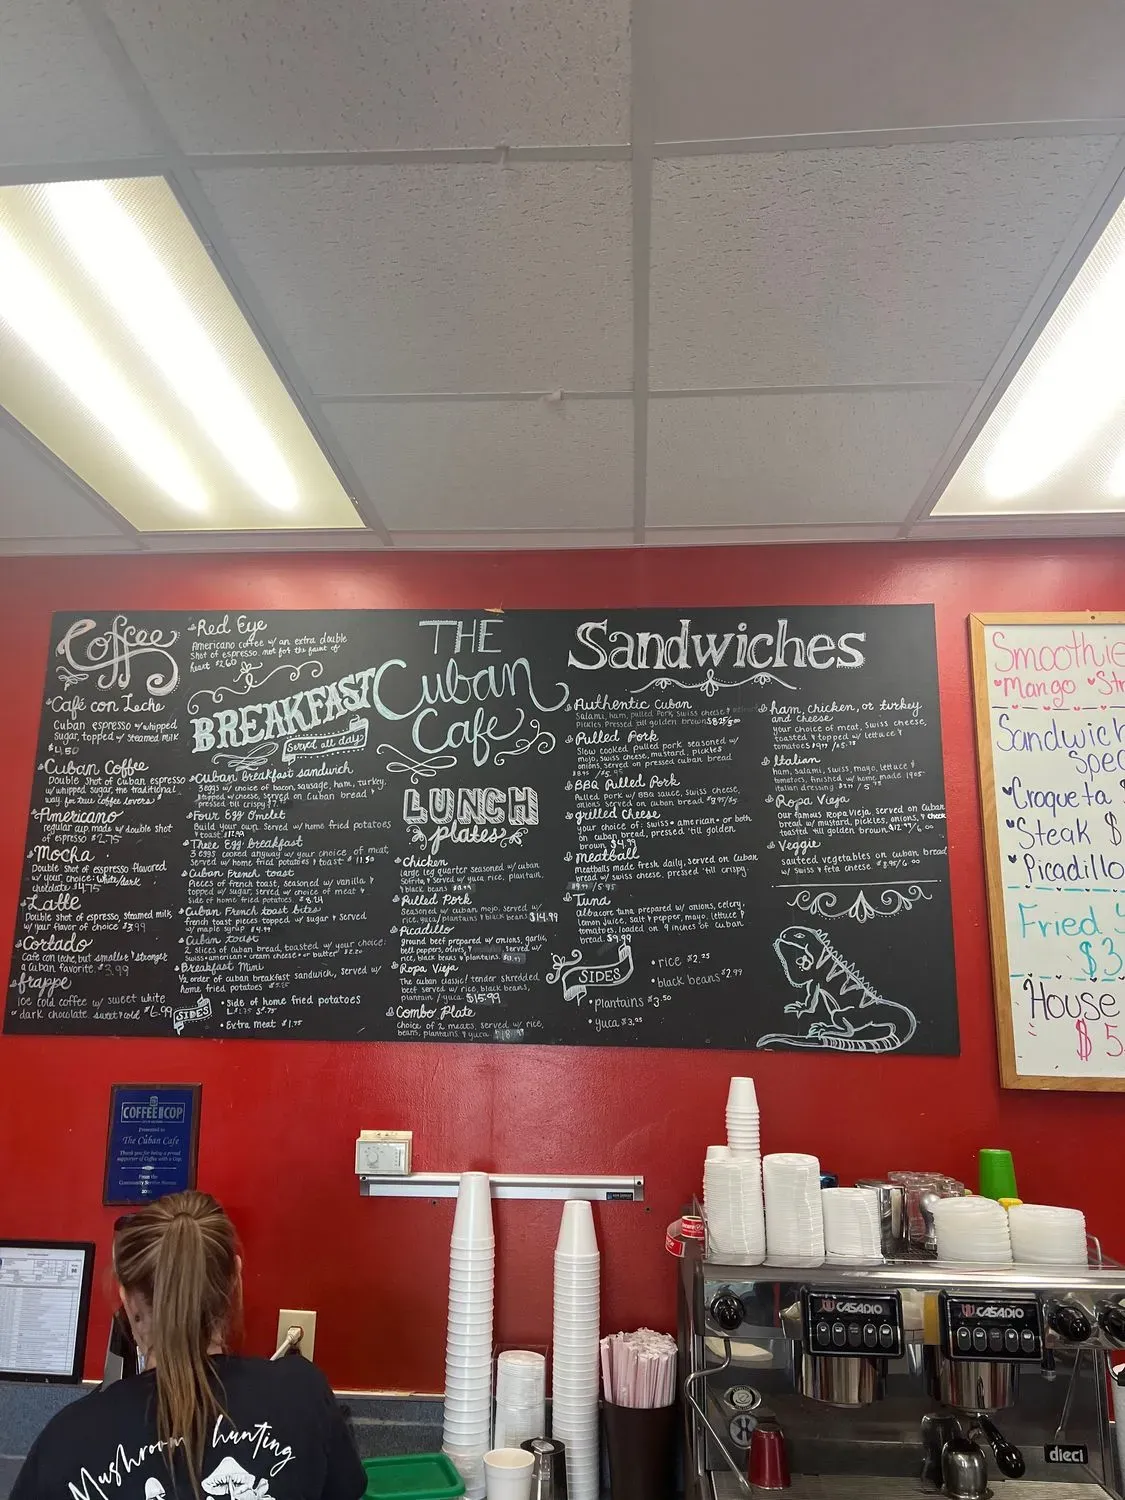 Coffee
Café con Leche
Cuban espresso w/whipped
sugar, topped w/ steamed milk
$4.50
Cuban Coffee
Double shot of Cuban espresso
w/whipped sugar, the traditional
way, for true coffee lovers
Americano
regular cup made w/double shot
of espresso $2.75
Mocha
Double shot of espresso flavored
w/ your choice: white/dark
chocolate $4.75
Latte
Double shot of espresso, steamed milk,
w/ your flavor of choice $3.99
Cortado
Cafe con leche, but smaller & stronger
a Cuban favorite. $3.99
frappe
ice cold coffee w/ sweet white
or dark chocolate. sweet & cold $6.99
Red Eye
Americano coffee w/ an extra double
shot of espresso. not for the faint of
heart $2.60
BREAKFAST
Served all day
Cuban Breakfast sandwich
3 eggs w/ choice of bacon, sausage, ham, turkey,
topped w/ cheese, served on Cuban bread &
pressed till crispy
Four Egg Omelet
Build your own. Served w/ home fried potatoes
& toast
Three Egg Breakfast
3 eggs cooked anyway w/ your choice of meat,
served w/ home fried potatoes & toast $11.50
Cuban French toast
Pieces of french toast, seasoned w/ vanilla &
topped w/ sugar, served w/ choice of meat &
side of home fried potatoes.
Cuban French toast bites
french toast pieces topped w/ sugar & served
w/ maple syrup $4.99
Cuban toast
2 slices of Cuban bread, toasted w/ your choice:
Swiss • american • cream cheese • or butter $2.20
Breakfast Mini
1/2 order of cuban breakfast sandwich, served w/
home fried potatoes
SIDES
• Side of home fried potatoes
• Extra meat $1.75
THE
Cuban
Cafe
LUNCH
plates
Chicken
large leg quarter seasoned w/ cuban
& served w/ yuca rice, plantain,
& black beans
Pulled Pork
Seasoned w/ cuban mojo, served w/
rice, yuca/plantains & black beans $14.99
Picadillo
ground beef prepared w/ onions, garlic,
bell peppers, olives, served w/
rice, black beans & plantains.
Ropa Vieja
The cuban classic! tender shredded
beef served w/ rice, black beans,
plantain / yuca $15.99
Combo Plate
choice of 2 meats, served w/ rice,
beans, plantains & yuca
Sandwiches
Authentic Cuban
Salami, ham, pulled pork, swiss cheese &
pickles. Pressed till golden brown
Pulled Pork
Slow cooked pulled pork seasoned w/
mojo, swiss cheese, mustard, pickles
onions, served on pressed cuban bread
BBQ Pulled Pork
Pulled pork w/ BBQ sauce, swiss cheese,
onions served on cuban bread
grilled cheese
your choice of: swiss • american • or both
on cuban bread, pressed 'till golden
brown $4.99
meatball
meatballs made fresh daily, served on Cuban
bread w/ swiss cheese, pressed 'till crispy.
Tuna
albacore tuna prepared w/ onions, celery,
lemon juice, salt & pepper, mayo, lettuce &
tomatoes, loaded on 9 inches of Cuban
bread. $9.99
SIDES
• rice $2.25
• black beans $2.99
• plantains $3.50
• yuca $3.25
ham, chicken, or turkey
and cheese
your choice of meat, swiss cheese,
toasted & topped w/ lettuce &
tomatoes
Italian
ham, salami, swiss, mayo, lettuce &
tomatoes, finished w/ home made
italian dressing
Ropa Vieja
our famous Ropa Vieja, served on Cuban
bread w/ mustard, pickles, onions, & cheese
toasted 'till golden brown
Veggie
sauteed vegetables on cuban bread
w/ Swiss & feta cheese
Smoothie
Mango
Sandwich
Spec
Croqueta $
Steak $
Picadillo
Fried
$3
House
$5
COFFEE COP
Presented to
The Cuban Cafe
Thank you for being a proud
supporter of Coffee with a Cop.
From the
Mushroom hunting
CASADIO
CASADIO
dieci